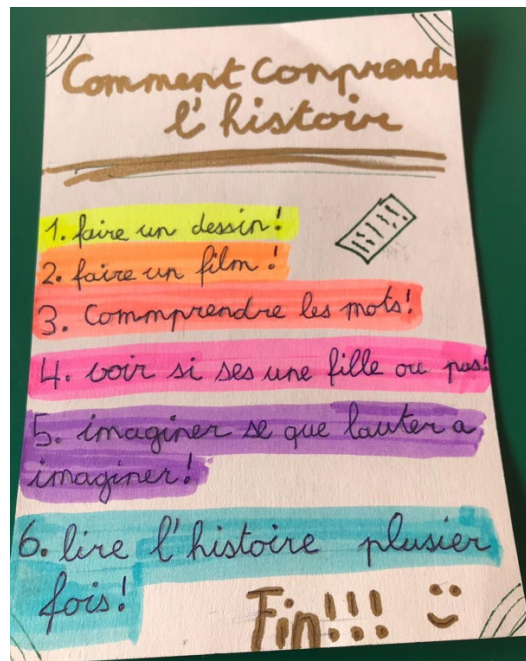 Comment conprendre
l'histoire
1. faire un dessin!
2. faire un film!
3. Commprendre les mots!
4. voir si ses une fille ou pas!
5. imaginer se que lauter a
imaginer!
6. lire l'histoire plusier
fois!
Fin!!!